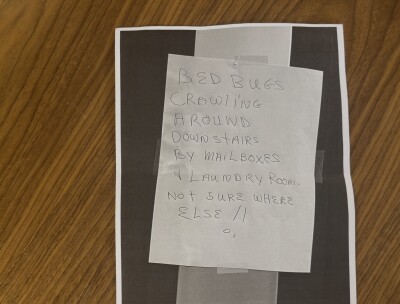 BED BUGS
CRAWLiNG
AROUND
DOWNSTAIRS
BY MAILBOXES
& LAUNDRY ROOM.
NOT SURE WHERE
ELSE !!